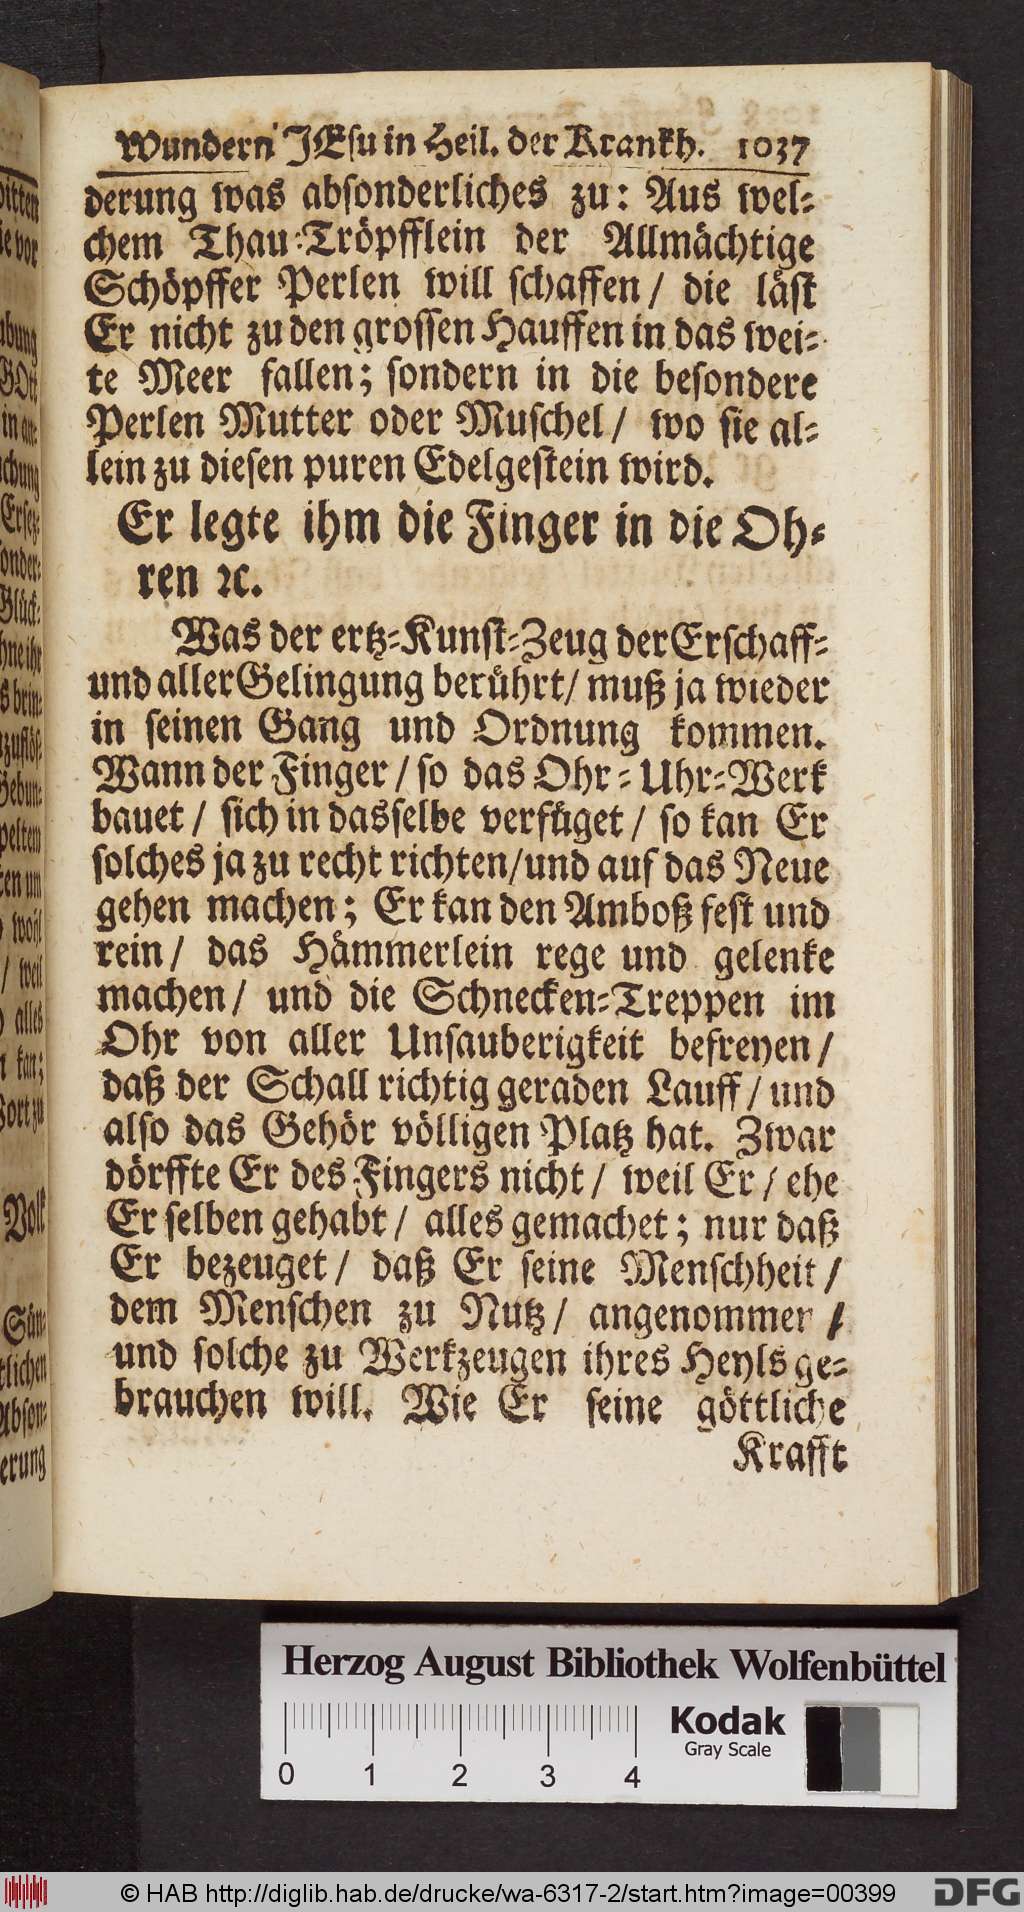 Wundern JEsu in Heil. der Krankh. 1037
derung was absonderliches zu: Aus wel-
chem Thau-Tröpfflein der Allmächtige
Schöpffer Perlen will schaffen / die läst
Er nicht zu den grossen Hauffen in das wei-
te Meer fallen; sondern in die besondere
Perlen Mutter oder Muschel / wo sie al-
lein zu diesen puren Edelgestein wird.
Er legte ihm die Finger in die Oh-
ren ꝛc.
Was der ertz-Kunst-Zeug der Erschaff-
und aller Gelingung berührt / muß ja wieder
in seinen Gang und Ordnung kommen.
Wann der Finger / so das Ohr-Uhr-Werk
bauet / sich in dasselbe verfüget / so kan Er
solches ja zu recht richten / und auf das Neue
gehen machen; Er kan den Amboß fest und
rein / das Hämmerlein rege und gelenke
machen / und die Schnecken-Treppen im
Ohr von aller Unsauberigkeit befreyen /
daß der Schall richtig geraden Lauff / und
also das Gehör völligen Platz hat. Zwar
dörffte Er des Fingers nicht / weil Er / ehe
Er selben gehabt / alles gemachet; nur daß
Er bezeuget / daß Er seine Menschheit /
dem Menschen zu Nutz / angenommen /
und solche zu Werkzeugen ihres Heyls ge-
brauchen will. Wie Er seine göttliche
Krafft
Herzog August Bibliothek Wolfenbüttel
Kodak
Gray Scale
0 1 2 3 4
© HAB http://diglib.hab.de/drucke/wa-6317-2/start.htm?image=00399
DFG